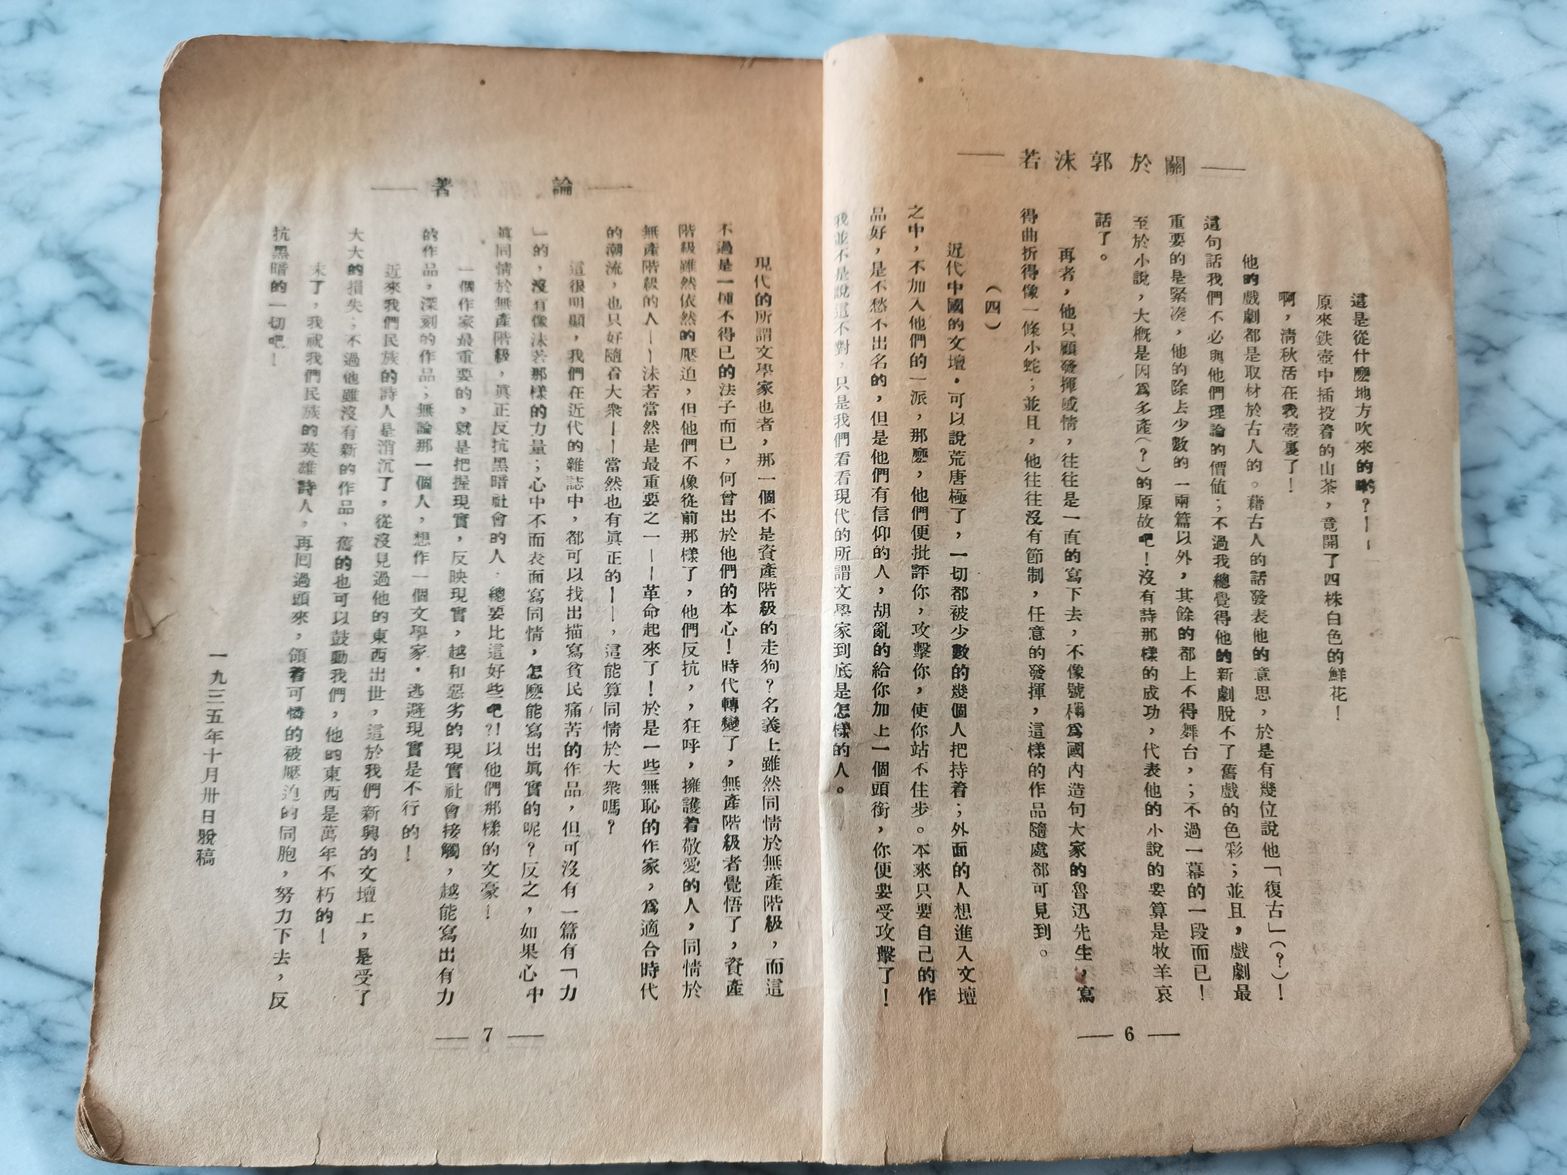 關於郭沫若
這是從什麼地方吹來的喲?——
原來鉄壺中插投着的山茶,竟開了四株白色的鮮花!
啊,清秋活在我壺裏了!
他的戲劇都是取材於古人的。藉古人的話發表他的意思,於是有幾位說他「復古」(?)!
這句話我們不必與他們理論的價值;不過我總覺得他的新劇脫不了舊戲的色彩;並且,戲劇最
重要的是緊凑,他的除去少數的一兩篇以外,其餘的都上不得舞台,;不過一幕的一段而已!
至於小說,大概是因爲多產(?)的原故吧!沒有詩那樣的成功,代表他的小說的要算是牧羊哀
話了。
再者,他只顧發揮感情,往往是一直的寫下去,不像號稱爲國內造句大家的魯迅先生,寫
得曲折得像一條小蛇;並且,他往往沒有節制,任意的發揮,這樣的作品隨處都可見到。
(四)
近代中國的文壇,可以說荒唐極了,一切都被少數的幾個人把持着;外面的人想進入文壇
之中,不加入他們的一派,那麼,他們便批評你,攻擊你,使你站不住步。本來只要自己的作
品好,是不愁不出名的,但是他們有信仰的人,胡亂的給你加上一個頭銜,你便要受攻擊了!
我並不是說這不對,只是我們看看現代的所謂文學家到底是怎樣的人。
6
論著
現代的所謂文學家也者,那一個不是資產階級的走狗?名義上雖然同情於無產階級,而這
不過是一種不得已的法子而已,何曾出於他們的本心!時代轉變了,無產階級者覺悟了,資產
階級雖然依然的壓迫,但他們不像從前那樣了,他們反抗,狂呼,擁護着敬愛的人,同情於
無產階級的人——沫若當然是最重要之一——革命起來了!於是一些無恥的作家,爲適合時代
的潮流,也只好隨着大衆——當然也有眞正的——,這能算同情於大衆嗎?
這很明顯,我們在近代的雜誌中,都可以找出描寫貧民痛苦的作品,但可沒有一篇有「力
」的,沒有像沫若那樣的力量;心中不而表面寫同情,怎麼能寫出眞實的呢?反之,如果心中
眞同情於無產階級,眞正反抗黑暗社會的人,總要比這好些吧?!以他們那樣的文豪!
一個作家最重要的,就是把握現實,反映現實,越和惡劣的現實社會接觸,越能寫出有力
的作品,深刻的作品;無論那一個人,想作一個文學家,逃避現實是不行的!
近來我們民族的詩人是消沉了,從沒見過他的東西出世,這於我們新興的文壇上,是受了
大大的損失;不過他雖沒有新的作品,舊的也可以鼓動我們,他的東西是萬年不朽的!
末了,我祝我們民族的英雄詩人,再囘過頭來,領着可憐的被壓迫的同胞,努力下去,反
抗黑暗的一切吧!
一九三五年十月卅日脫稿
7